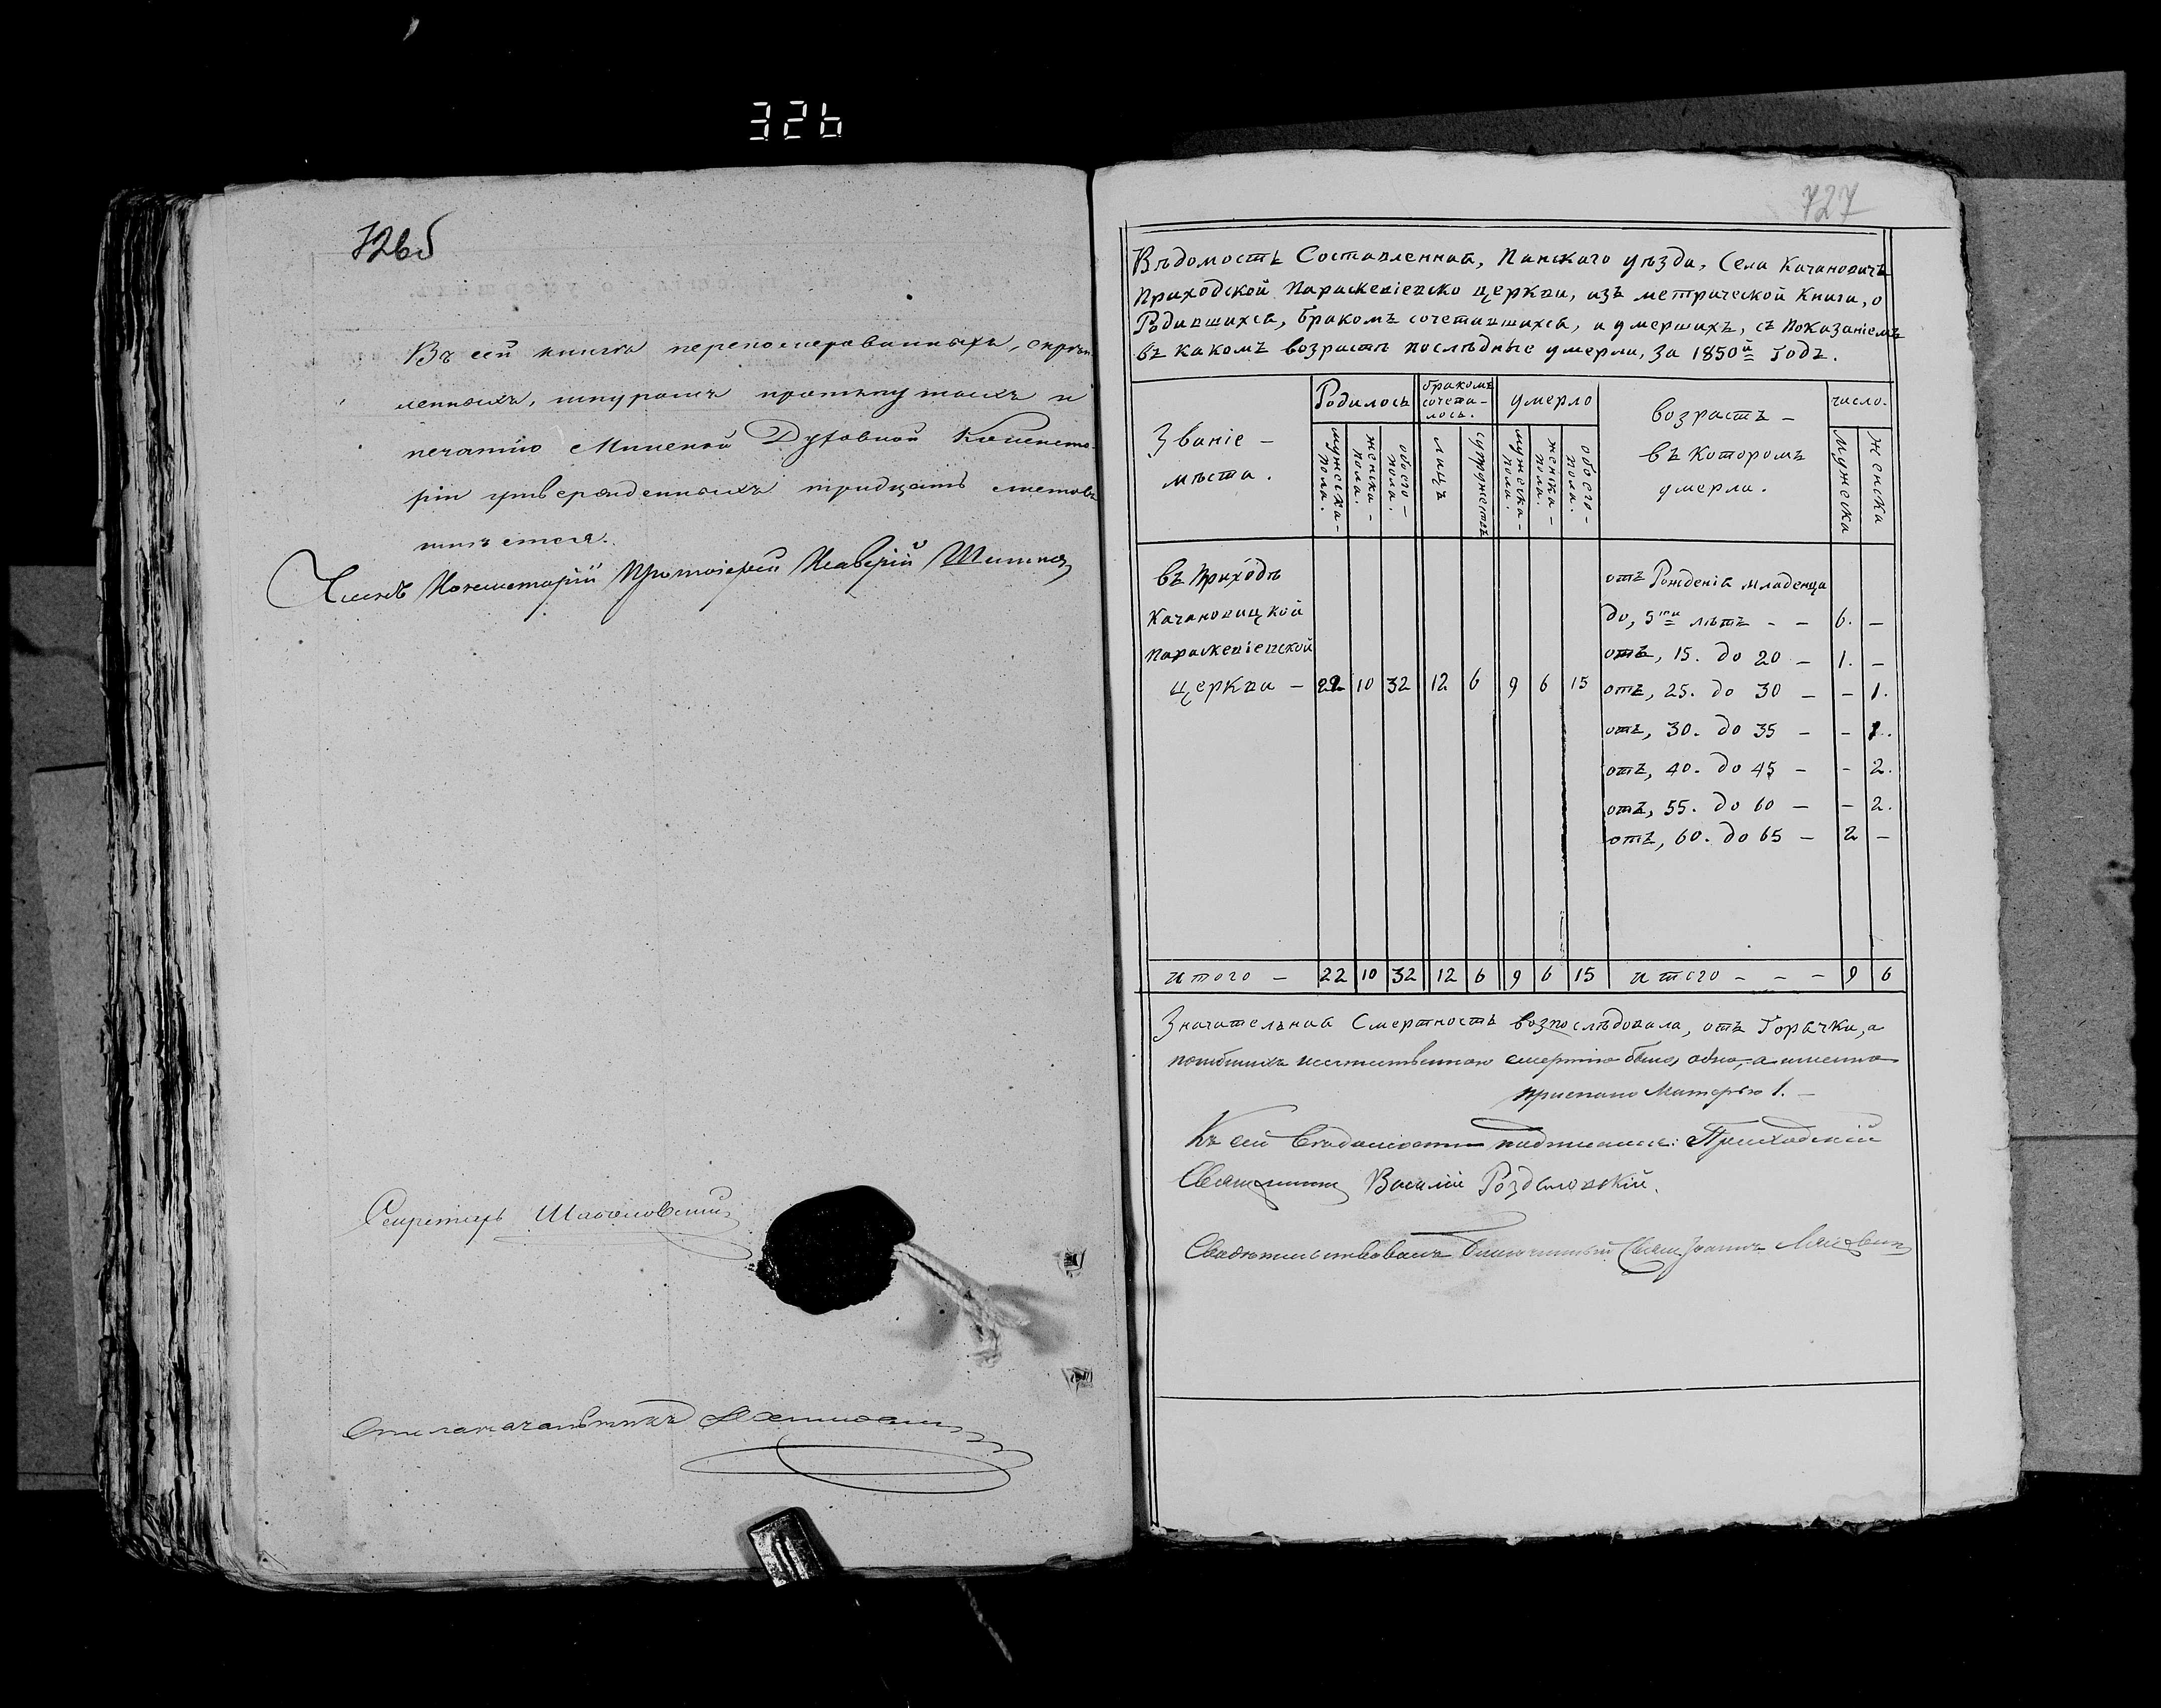 326
726б
Въ сей книгѣ перенумерованныхъ, скрѣп
ленныхъ, шнуромъ протянутыхъ и
печатію Минской Духовной Консисто-
ріи утвержденныхъ тридцать листовъ
имѣется.
Членъ Консисторіи Протоіерей
Секретарь
Столоначальникъ
727
Вѣдомость Составленная, Пинскаго уѣзда, Села Качановичъ
Приходской Параскевіевско церкви, изъ метрической Книги, о
Родившихся, бракомъ сочетавшихся, и умершихъ, съ показаніемъ
въ какомъ возрастѣ послѣдніе умерли, за 1850й Годъ.
Званіе –
мѣста.
Родилось
мужеска – пола.
женска – пола.
обоего – пола.
бракомъ
сочета-
лось.
лицъ
супружествъ
умерло
мужеска – пола.
женска – пола.
обоего – пола.
возрастъ –
въ Которомъ
умерли.
число.
мужеска
женска
въ Приходѣ
Качановицкой
Параскевіевской
церкви – 22 10 32 12 6 9 6 15
отъ Рожденія младенца
до, 5ти лѣтъ – – 6. –
отъ, 15. до 20 – 1. –
отъ, 25. до 30 – – 1.
отъ, 30. до 35 – – 1.
отъ, 40. до 45 – – 2.
отъ, 55. до 60 – – 2.
отъ, 60. до 65 – 2 –
итого – 22 10 32 12 6 9 6 15 итого – – – 9 6
Значительная Смертность возпослѣдовала, отъ Горячки, а
погибшихъ неестественною смертію было одно, а именно
приспано Матерью 1. –
Къ сей Вѣдомости подписался: Приходскій
Священникъ Василій
Свидѣтельствовалъ Благочинный Свящ. Іоаннъ